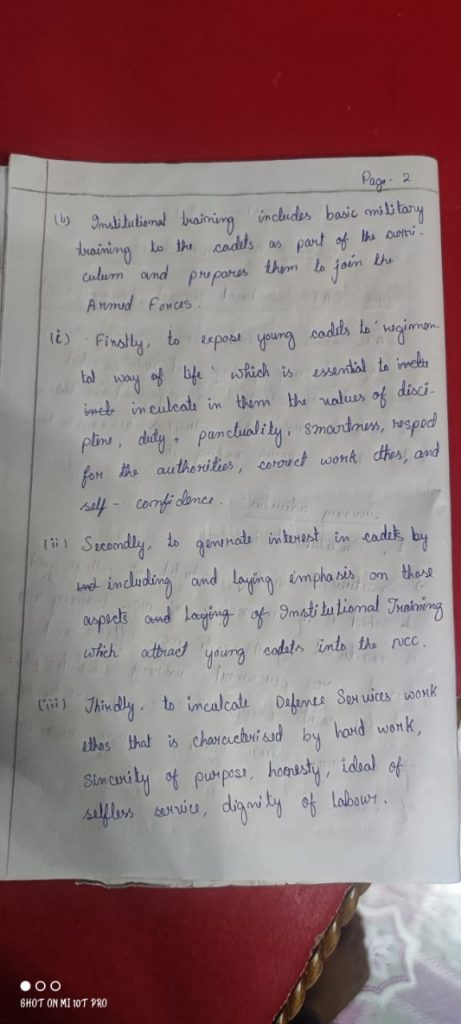 Page - 2
(b) Institutional training includes basic military
training to the cadets as part of the curri-
culum and prepares them to join the
Armed Forces.
(i) Firstly, to expose young cadets to 'regimen-
tal way of life' which is essential to
inculcate in them the values of disci-
pline, duty, punctuality, smartness, respect
for the authorities, correct work ethos, and
self - confidence.
(ii) Secondly, to generate interest in cadets by
including and laying emphasis on those
aspects and Laying of Institutional Training
which attract young cadets into the NCC.
(iii) Thirdly, to inculcate Defence Services work
ethos that is characterised by hard work,
Sincerity of purpose, honesty, ideal of
selfless service, dignity of labour.
SHOT ON MI 10T PRO